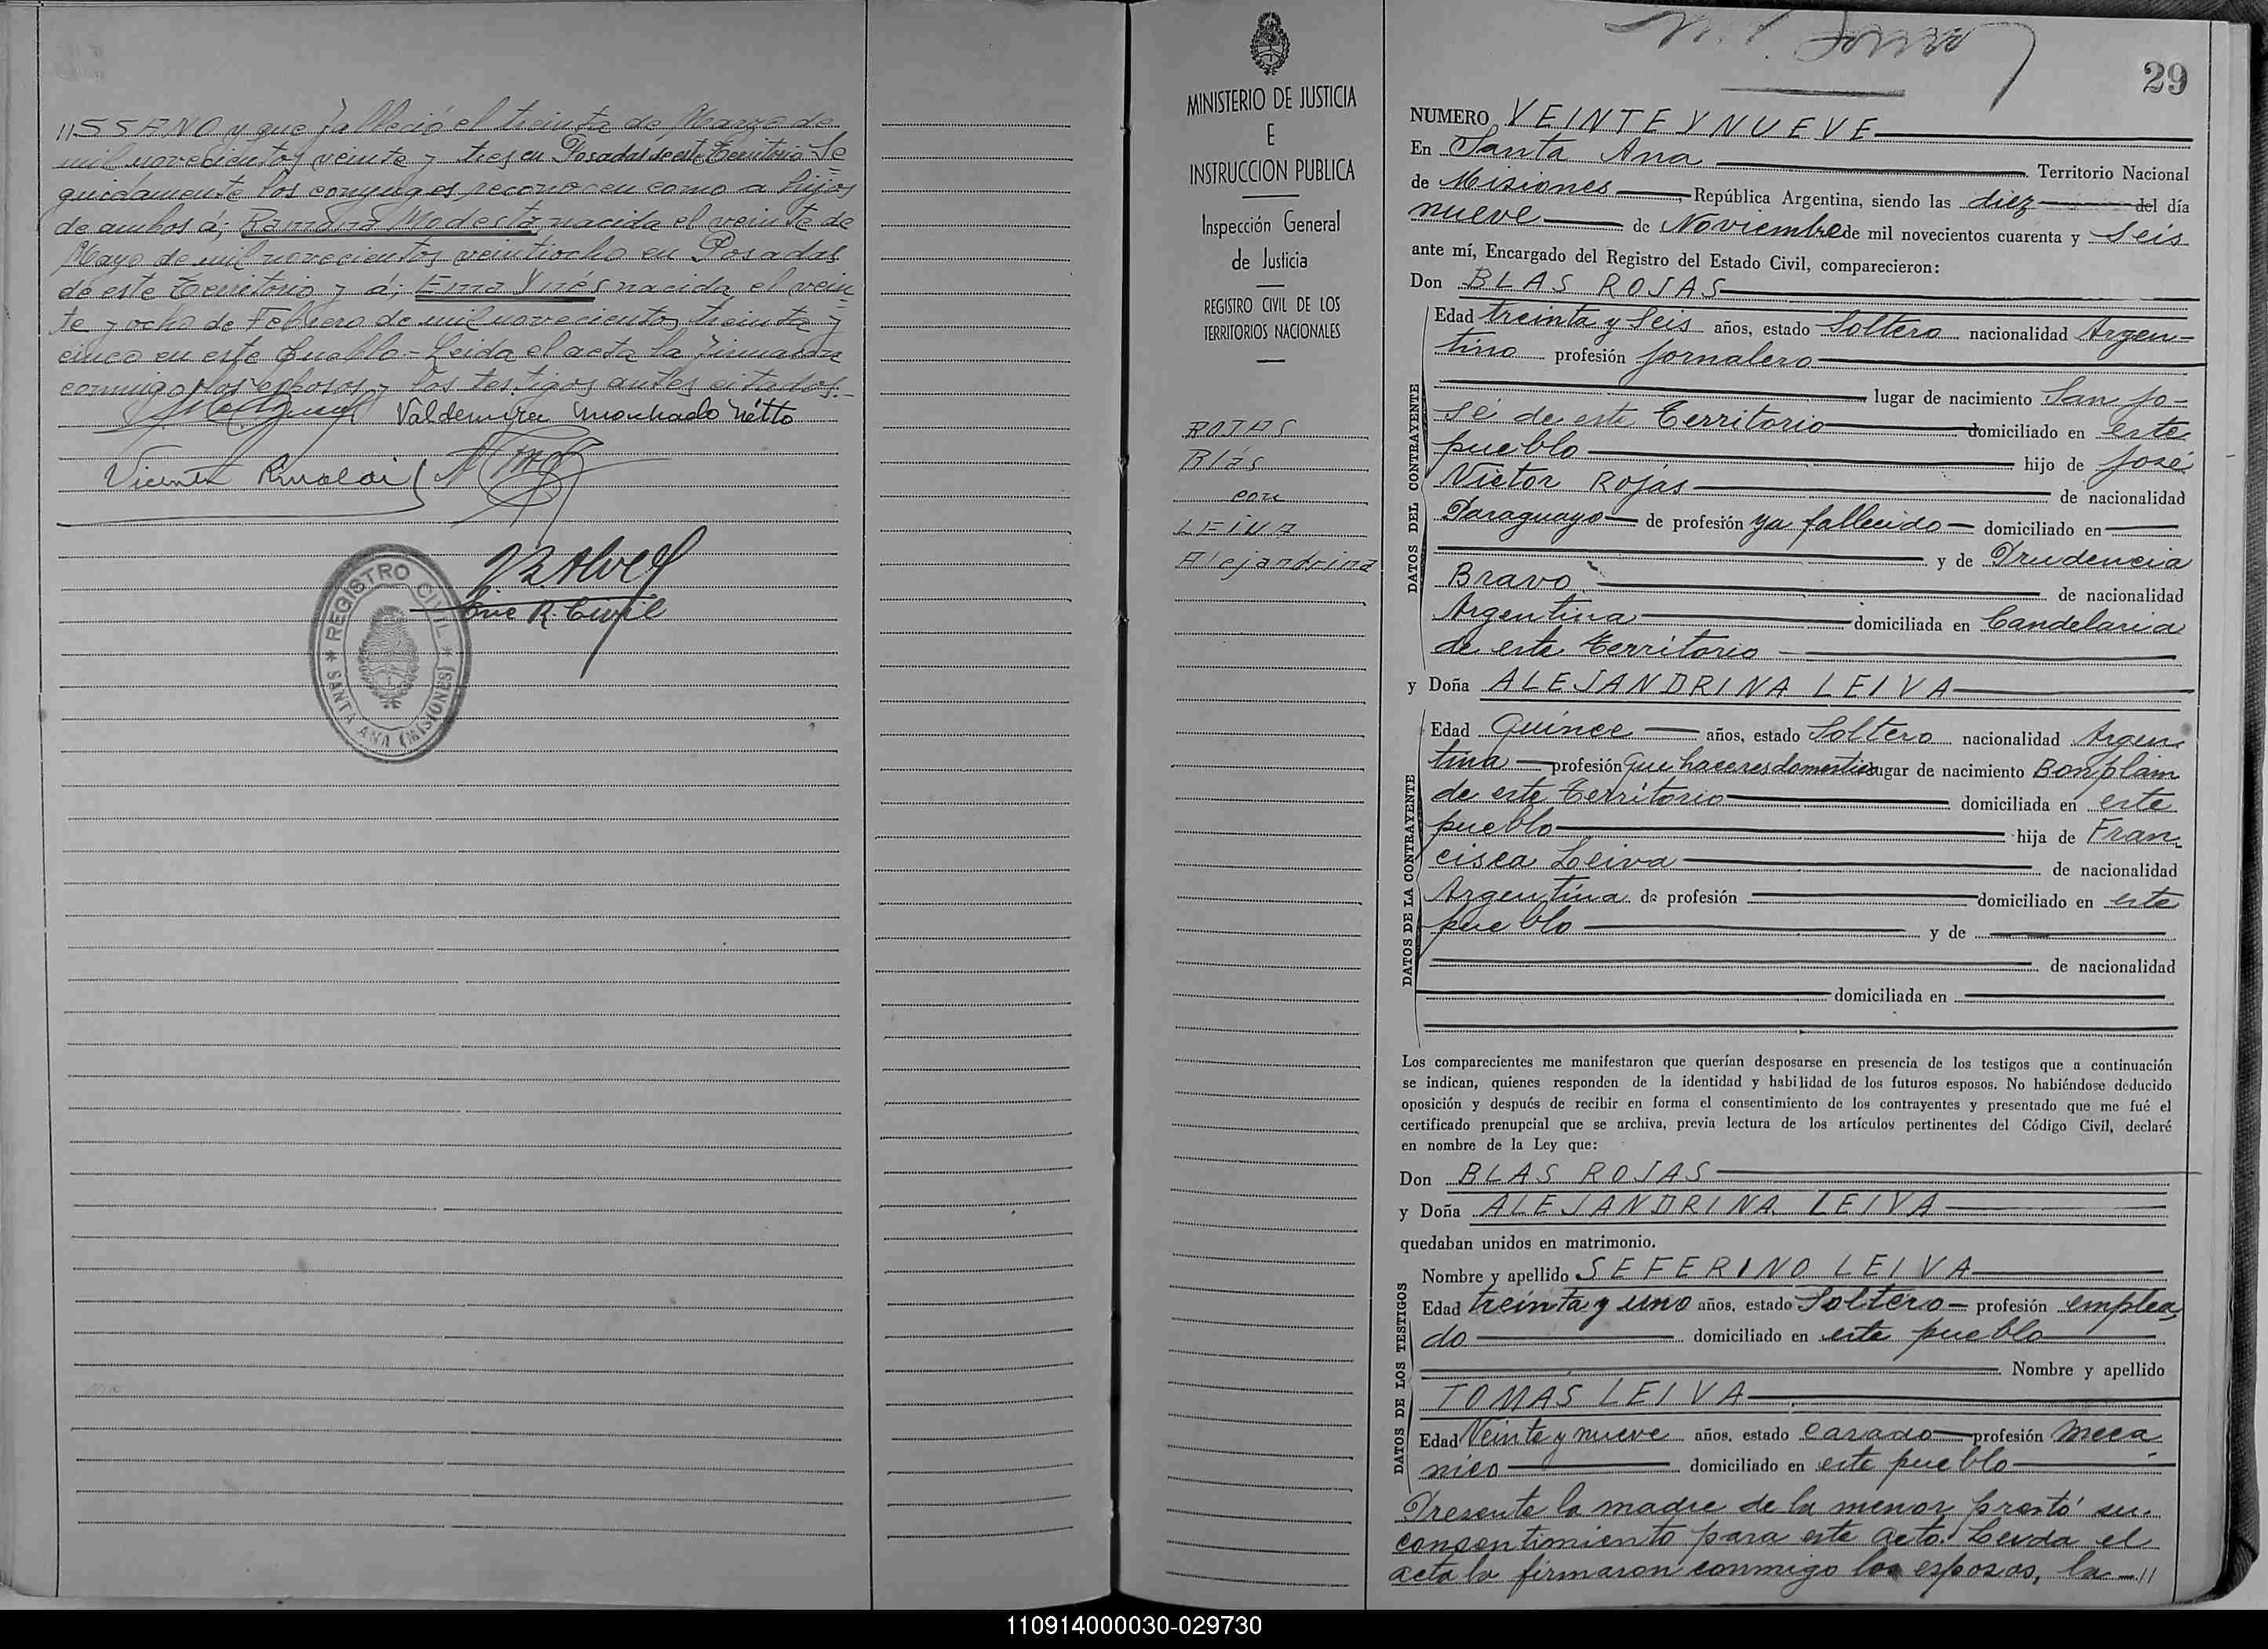 //SSANO y que falleció el treinta de Marzo de
mil novecientos veinte y tres en Posadas de este Territorio. Se
guidamente los conyuges reconocen como a hijos
de ambos á; Ramona Modesta nacida el veinte de
Mayo de mil novecientos veintiocho en Posadas
de este Territorio y á; Ema Ynés nacida el vein
te y ocho de Febrero de mil novecientos treinta y
cinco en este Pueblo - Leida el acta la firmaron
conmigo los esposos y los testigos antes citados.-
Valdemira Machado Nétto
Vicente Rinaldi
Enc R. Civil
REGISTRO CIVIL
SANTA ANA (MISIONES)
MINISTERIO DE JUSTICIA
E
INSTRUCCION PUBLICA
Inspección General
de Justicia
REGISTRO CIVIL DE LOS
TERRITORIOS NACIONALES
ROJAS
Blás
con
LEIVA
Alejandrina
29
NUMERO VEINTE Y NUEVE
En Santa Ana Territorio Nacional
de Misiones República Argentina, siendo las diez del día
nueve de Noviembre de mil novecientos cuarenta y seis
ante mí, Encargado del Registro del Estado Civil, comparecieron:
Don BLAS ROJAS
DATOS DEL CONTRAYENTE
Edad treinta y seis años, estado Soltero nacionalidad Argen-
tino profesión Jornalero
lugar de nacimiento San Jo-
sé de este Territorio domiciliado en este
pueblo hijo de José
Victor Rojas de nacionalidad
Paraguayo de profesión ya fallecido domiciliado en
y de Prudencia
Bravo de nacionalidad
Argentina domiciliada en Candelaria
de este Territorio
y Doña ALEJANDRINA LEIVA
DATOS DE LA CONTRAYENTE
Edad Quince años, estado Soltero nacionalidad Argen
tina profesión Que haceres domestico lugar de nacimiento Bonplam
de este Territorio domiciliada en este
pueblo hija de Fran
cisca Leiva de nacionalidad
Argentina de profesión domiciliado en este
pueblo y de
de nacionalidad
domiciliada en
Los comparecientes me manifestaron que querían desposarse en presencia de los testigos que a continuación
se indican, quienes responden de la identidad y habilidad de los futuros esposos. No habiéndose deducido
oposición y después de recibir en forma el consentimiento de los contrayentes y presentado que me fué el
certificado prenupcial que se archiva, previa lectura de los artículos pertinentes del Código Civil, declaré
en nombre de la Ley que:
Don BLAS ROJAS
y Doña ALEJANDRINA LEIVA
quedaban unidos en matrimonio.
DATOS DE LOS TESTIGOS
Nombre y apellido SEFERINO LEIVA
Edad treinta y uno años, estado Soltero profesión emplea
do domiciliado en este pueblo
Nombre y apellido
TOMAS LEIVA
Edad Veinte y nueve años, estado casado profesión mecá
nico domiciliado en este pueblo
Presente la madre de la menor prestó su
consentimiento para este acto. Leida el
acta la firmaron conmigo los esposos, la -//
110914000030-029730